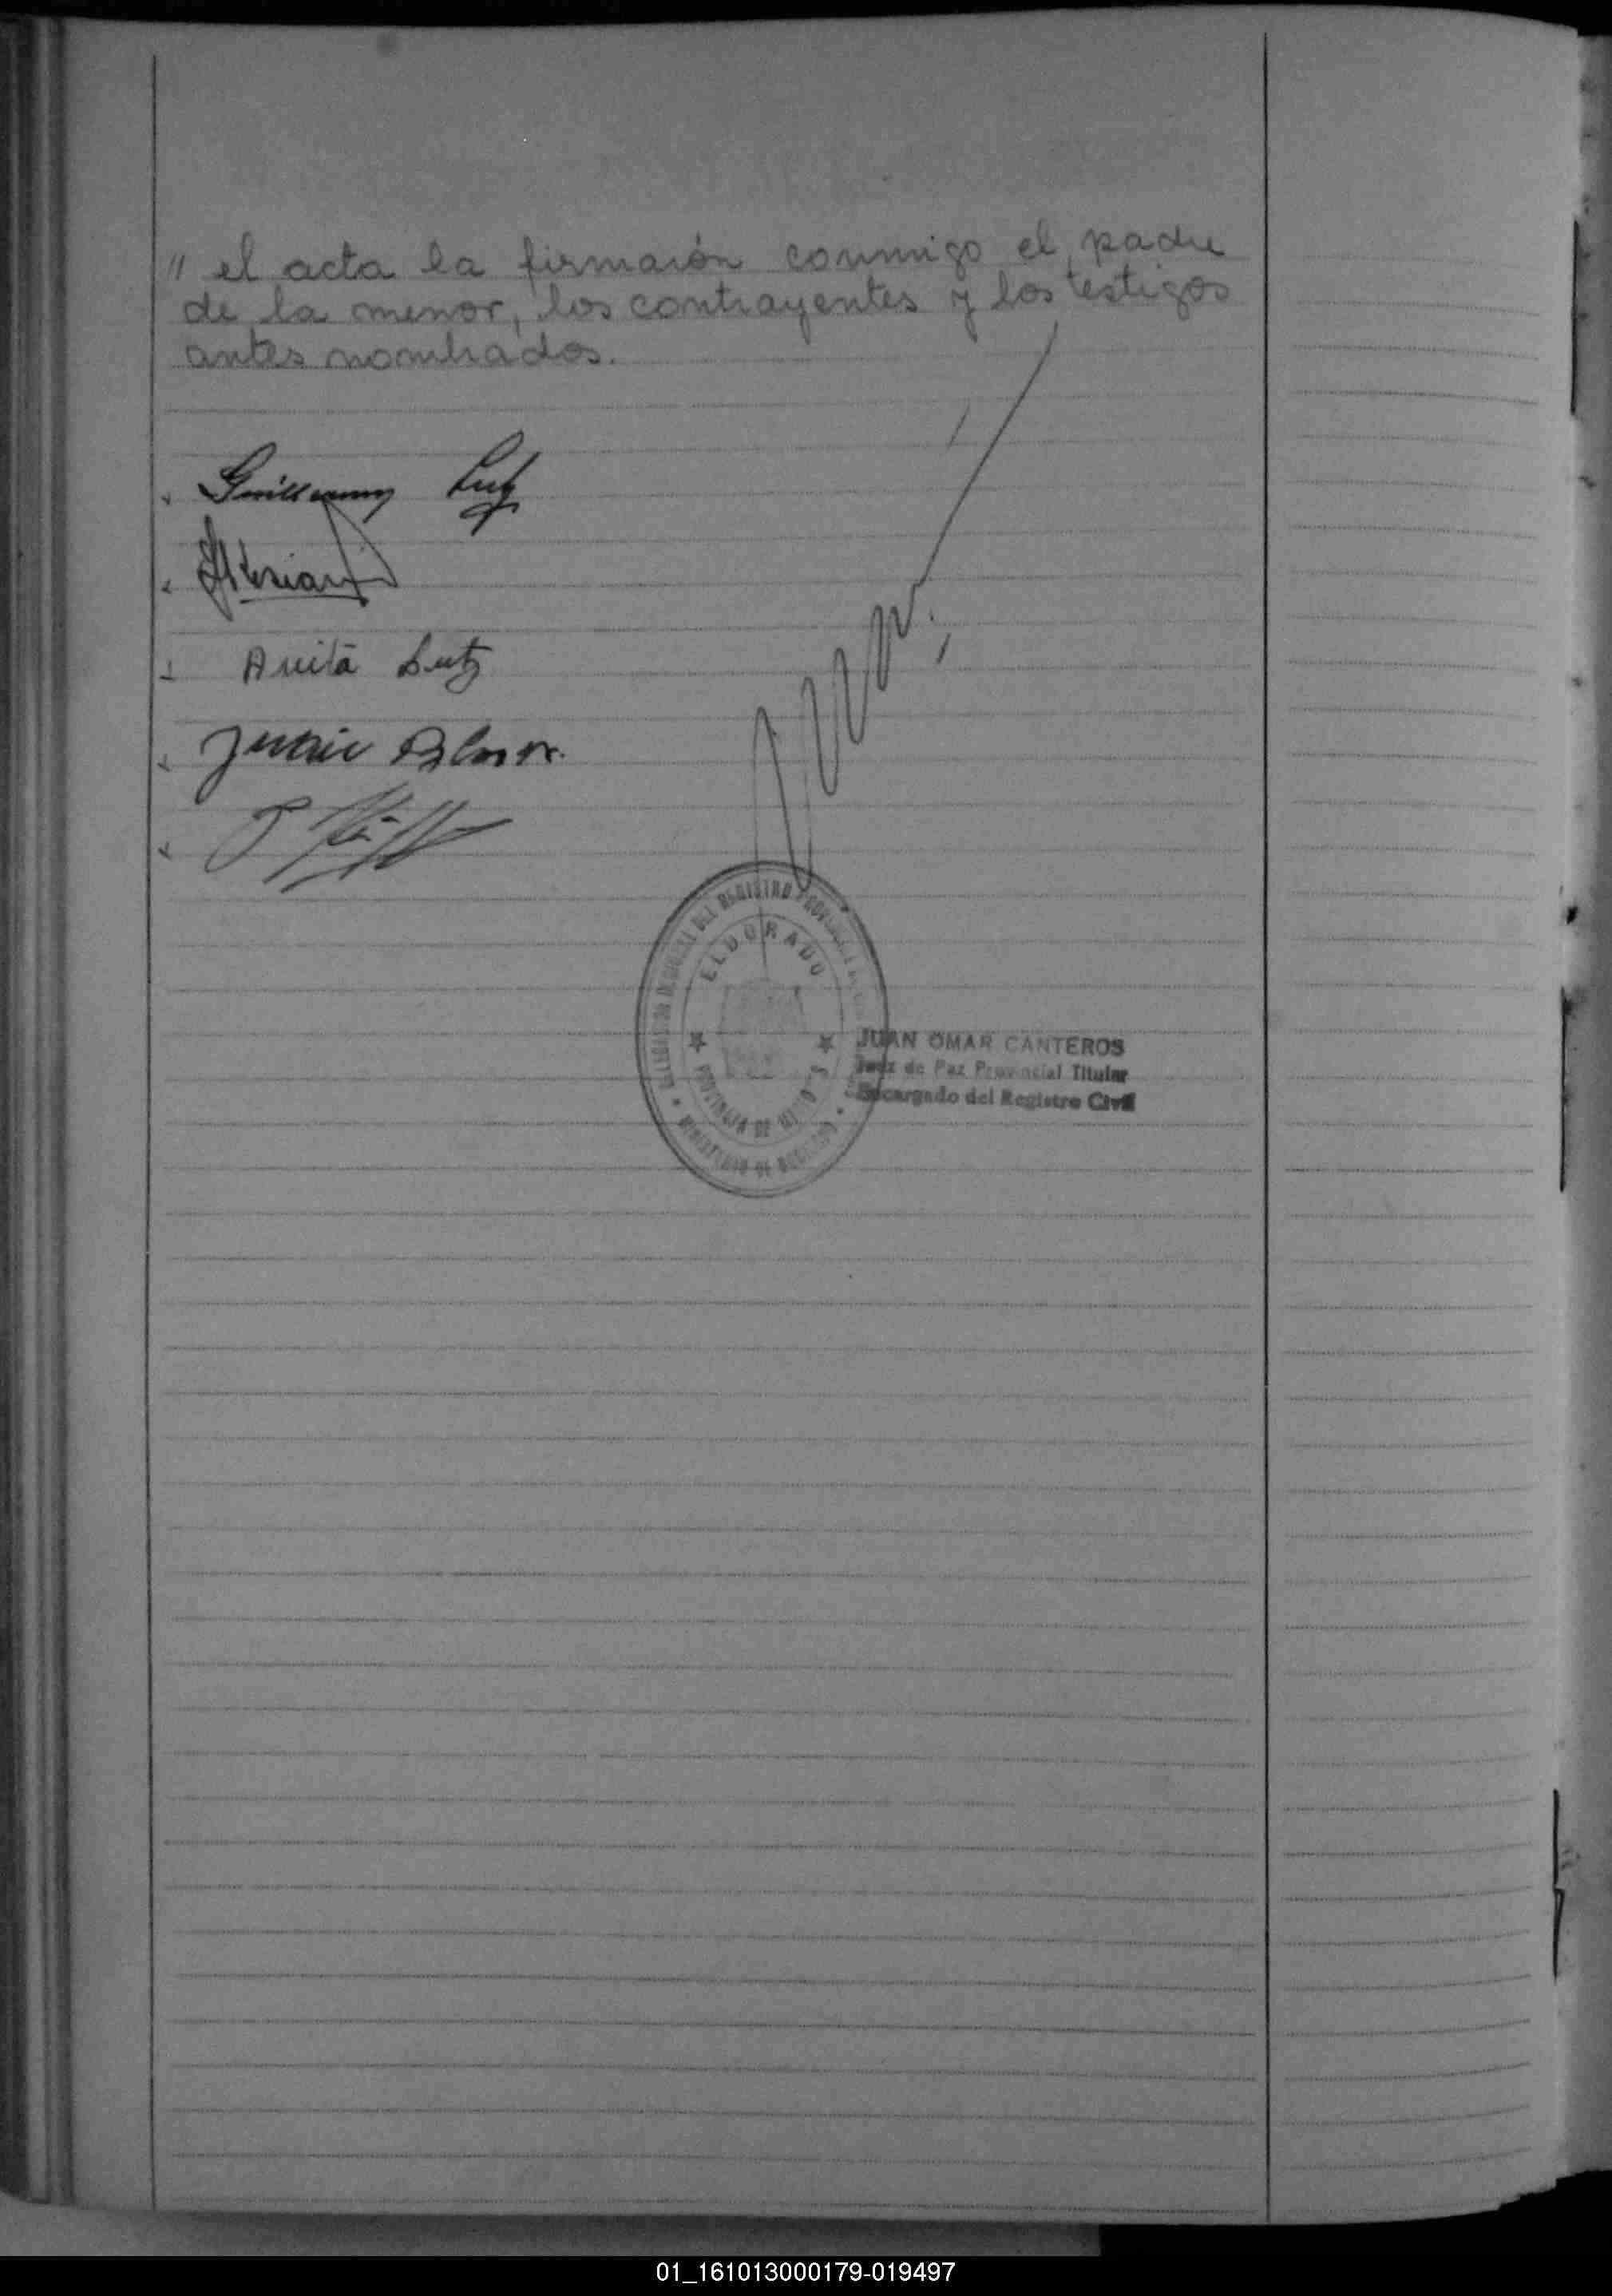 " el acta la firmarón conmigo el padre
de la menor, los contrayentes y los testigos
antes nombrados.
Guillermo Lutz
Anita Lutz
DEL REGISTRO PROVINCIAL
ELDORADO
PROVINCIA DE MISIONES
MINISTERIO DE GOBIERNO
JUAN OMAR CANTEROS
Juez de Paz Provincial Titular
Encargado del Registro Civil
01_161013000179-019497